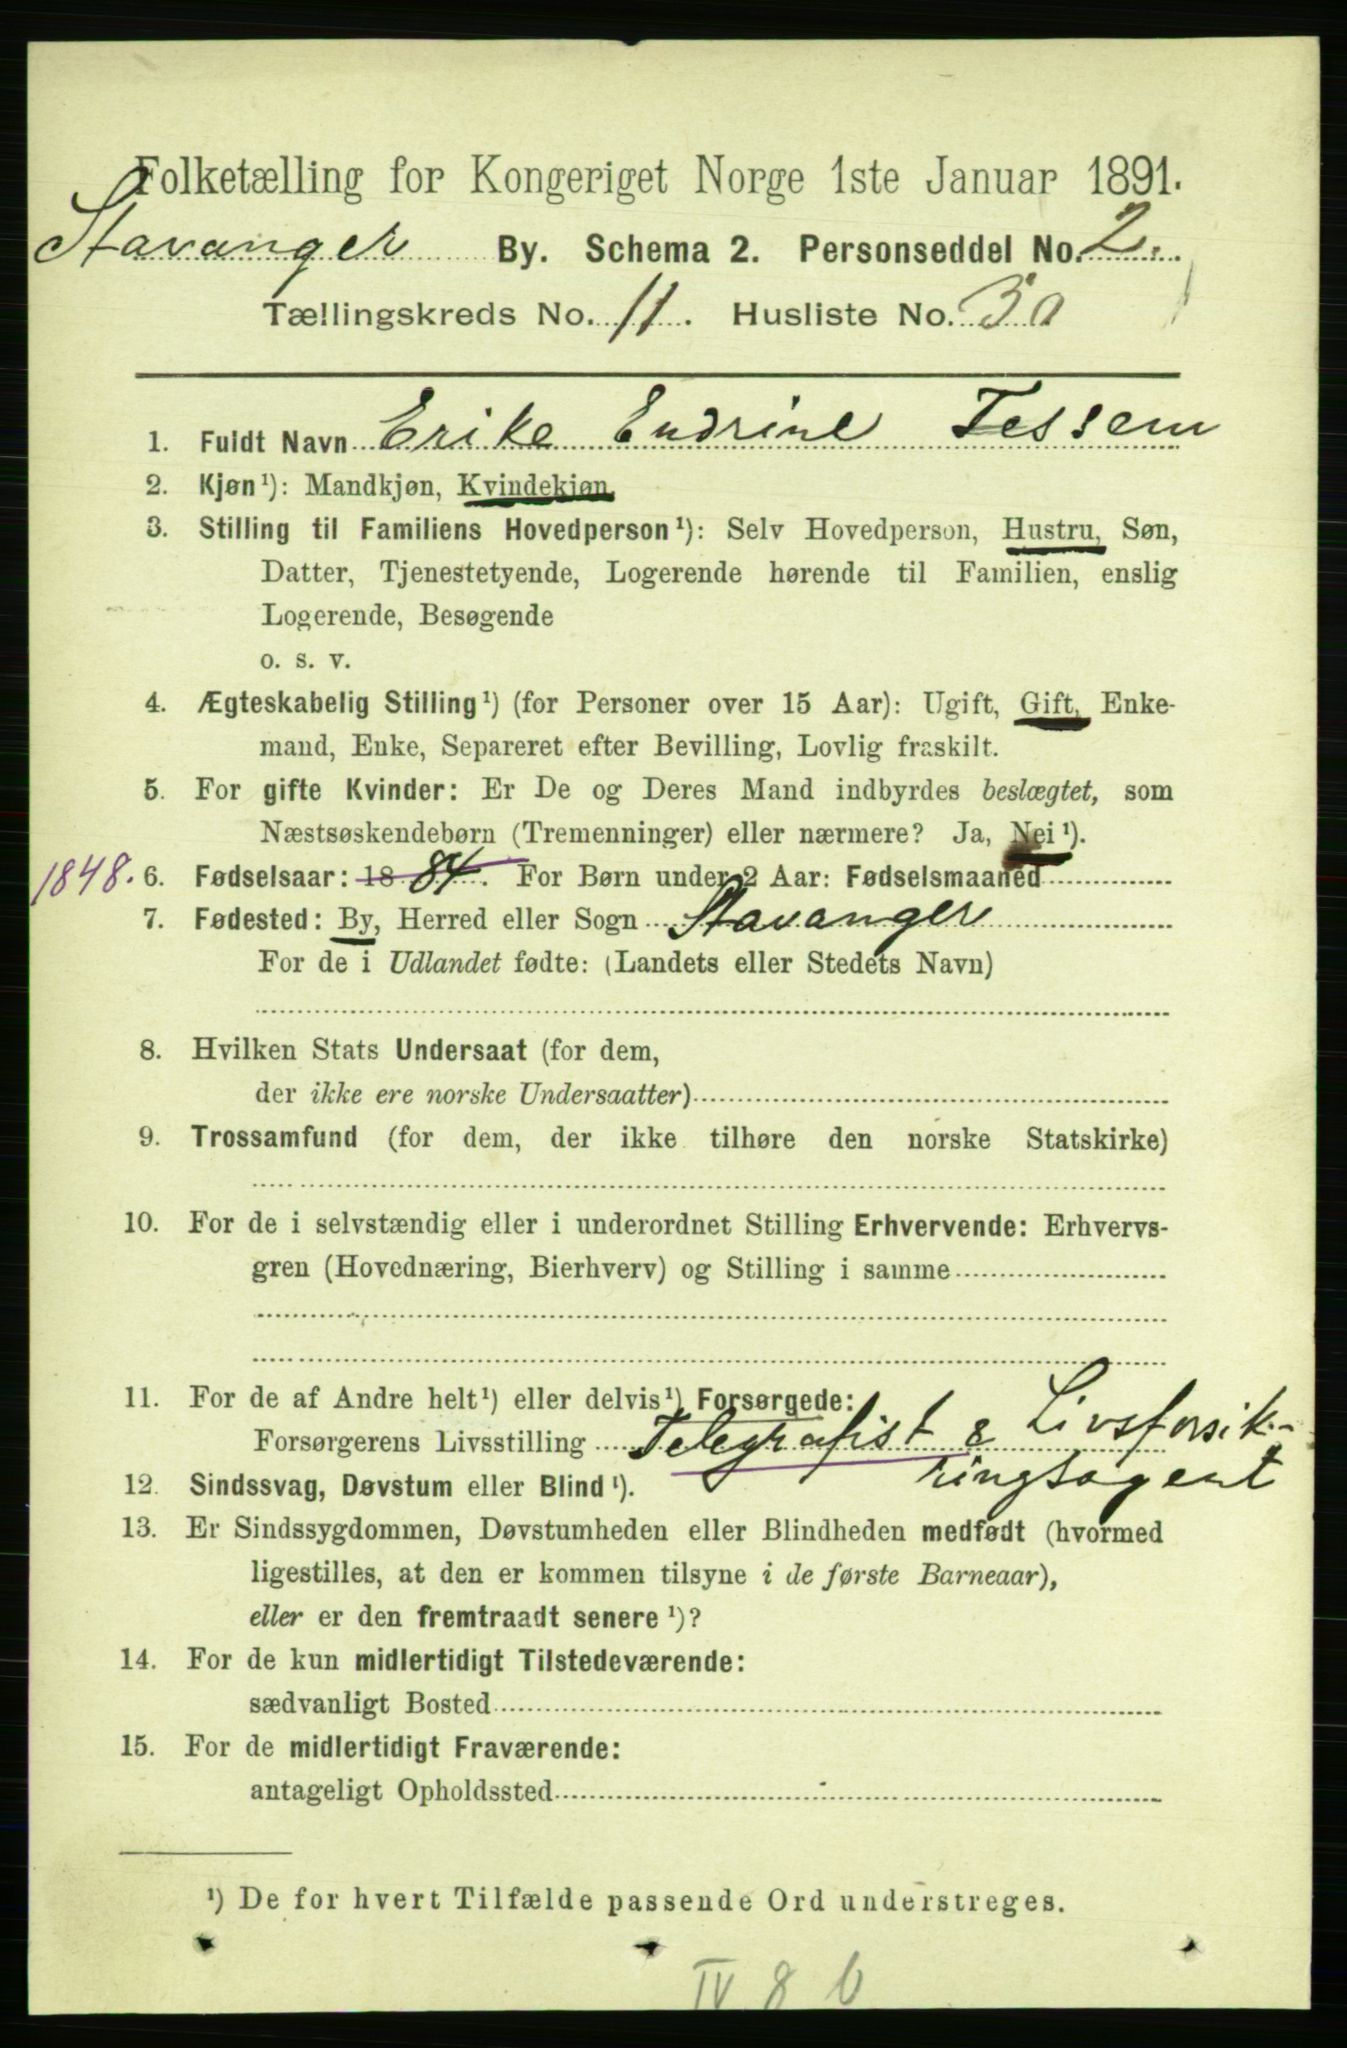 Folketælling for Kongeriget Norge 1ste Januar 1891.
Stavanger By. Schema 2. Personseddel No. 2.
Tællingskreds No. 11. Husliste No. 30
1. Fuldt Navn Erike Endrine Tessem
2. Kjøn¹): Mandkjøn, Kvindekjøn.
3. Stilling til Familiens Hovedperson¹): Selv Hovedperson, Hustru, Søn,
Datter, Tjenestetyende, Logerende hørende til Familien, enslig
Logerende, Besøgende
o. s. v.
4. Ægteskabelig Stilling¹) (for Personer over 15 Aar): Ugift, Gift, Enke-
mand, Enke, Separeret efter Bevilling, Lovlig fraskilt.
5. For gifte Kvinder: Er De og Deres Mand indbyrdes beslægtet, som
Næstsøskendebørn (Tremenninger) eller nærmere? Ja, Nei¹).
1848. 6. Fødselsaar: 1884. For Børn under 2 Aar: Fødselsmaaned
7. Fødested: By, Herred eller Sogn Stavanger
For de i Udlandet fødte: (Landets eller Stedets Navn)
8. Hvilken Stats Undersaat (for dem,
der ikke ere norske Undersaatter)
9. Trossamfund (for dem, der ikke tilhøre den norske Statskirke)
10. For de i selvstændig eller i underordnet Stilling Erhvervende: Erhvervs-
gren (Hovednæring, Bierhverv) og Stilling i samme
11. For de af Andre helt¹) eller delvis¹) Forsørgede:
Forsørgerens Livsstilling Telegrafist & Livsforsik-
ringsagent
12. Sindssvag, Døvstum eller Blind¹).
13. Er Sindssygdommen, Døvstumheden eller Blindheden medfødt (hvormed
ligestilles, at den er kommen tilsyne i de første Barneaar),
eller er den fremtraadt senere¹)?
14. For de kun midlertidigt Tilstedeværende:
sædvanligt Bosted
15. For de midlertidigt Fraværende:
antageligt Opholdssted
¹) De for hvert Tilfælde passende Ord understreges.
IV 8 b